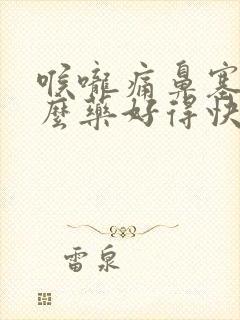 喉嚨痛鼻塞
麼藥好得快
雷泉